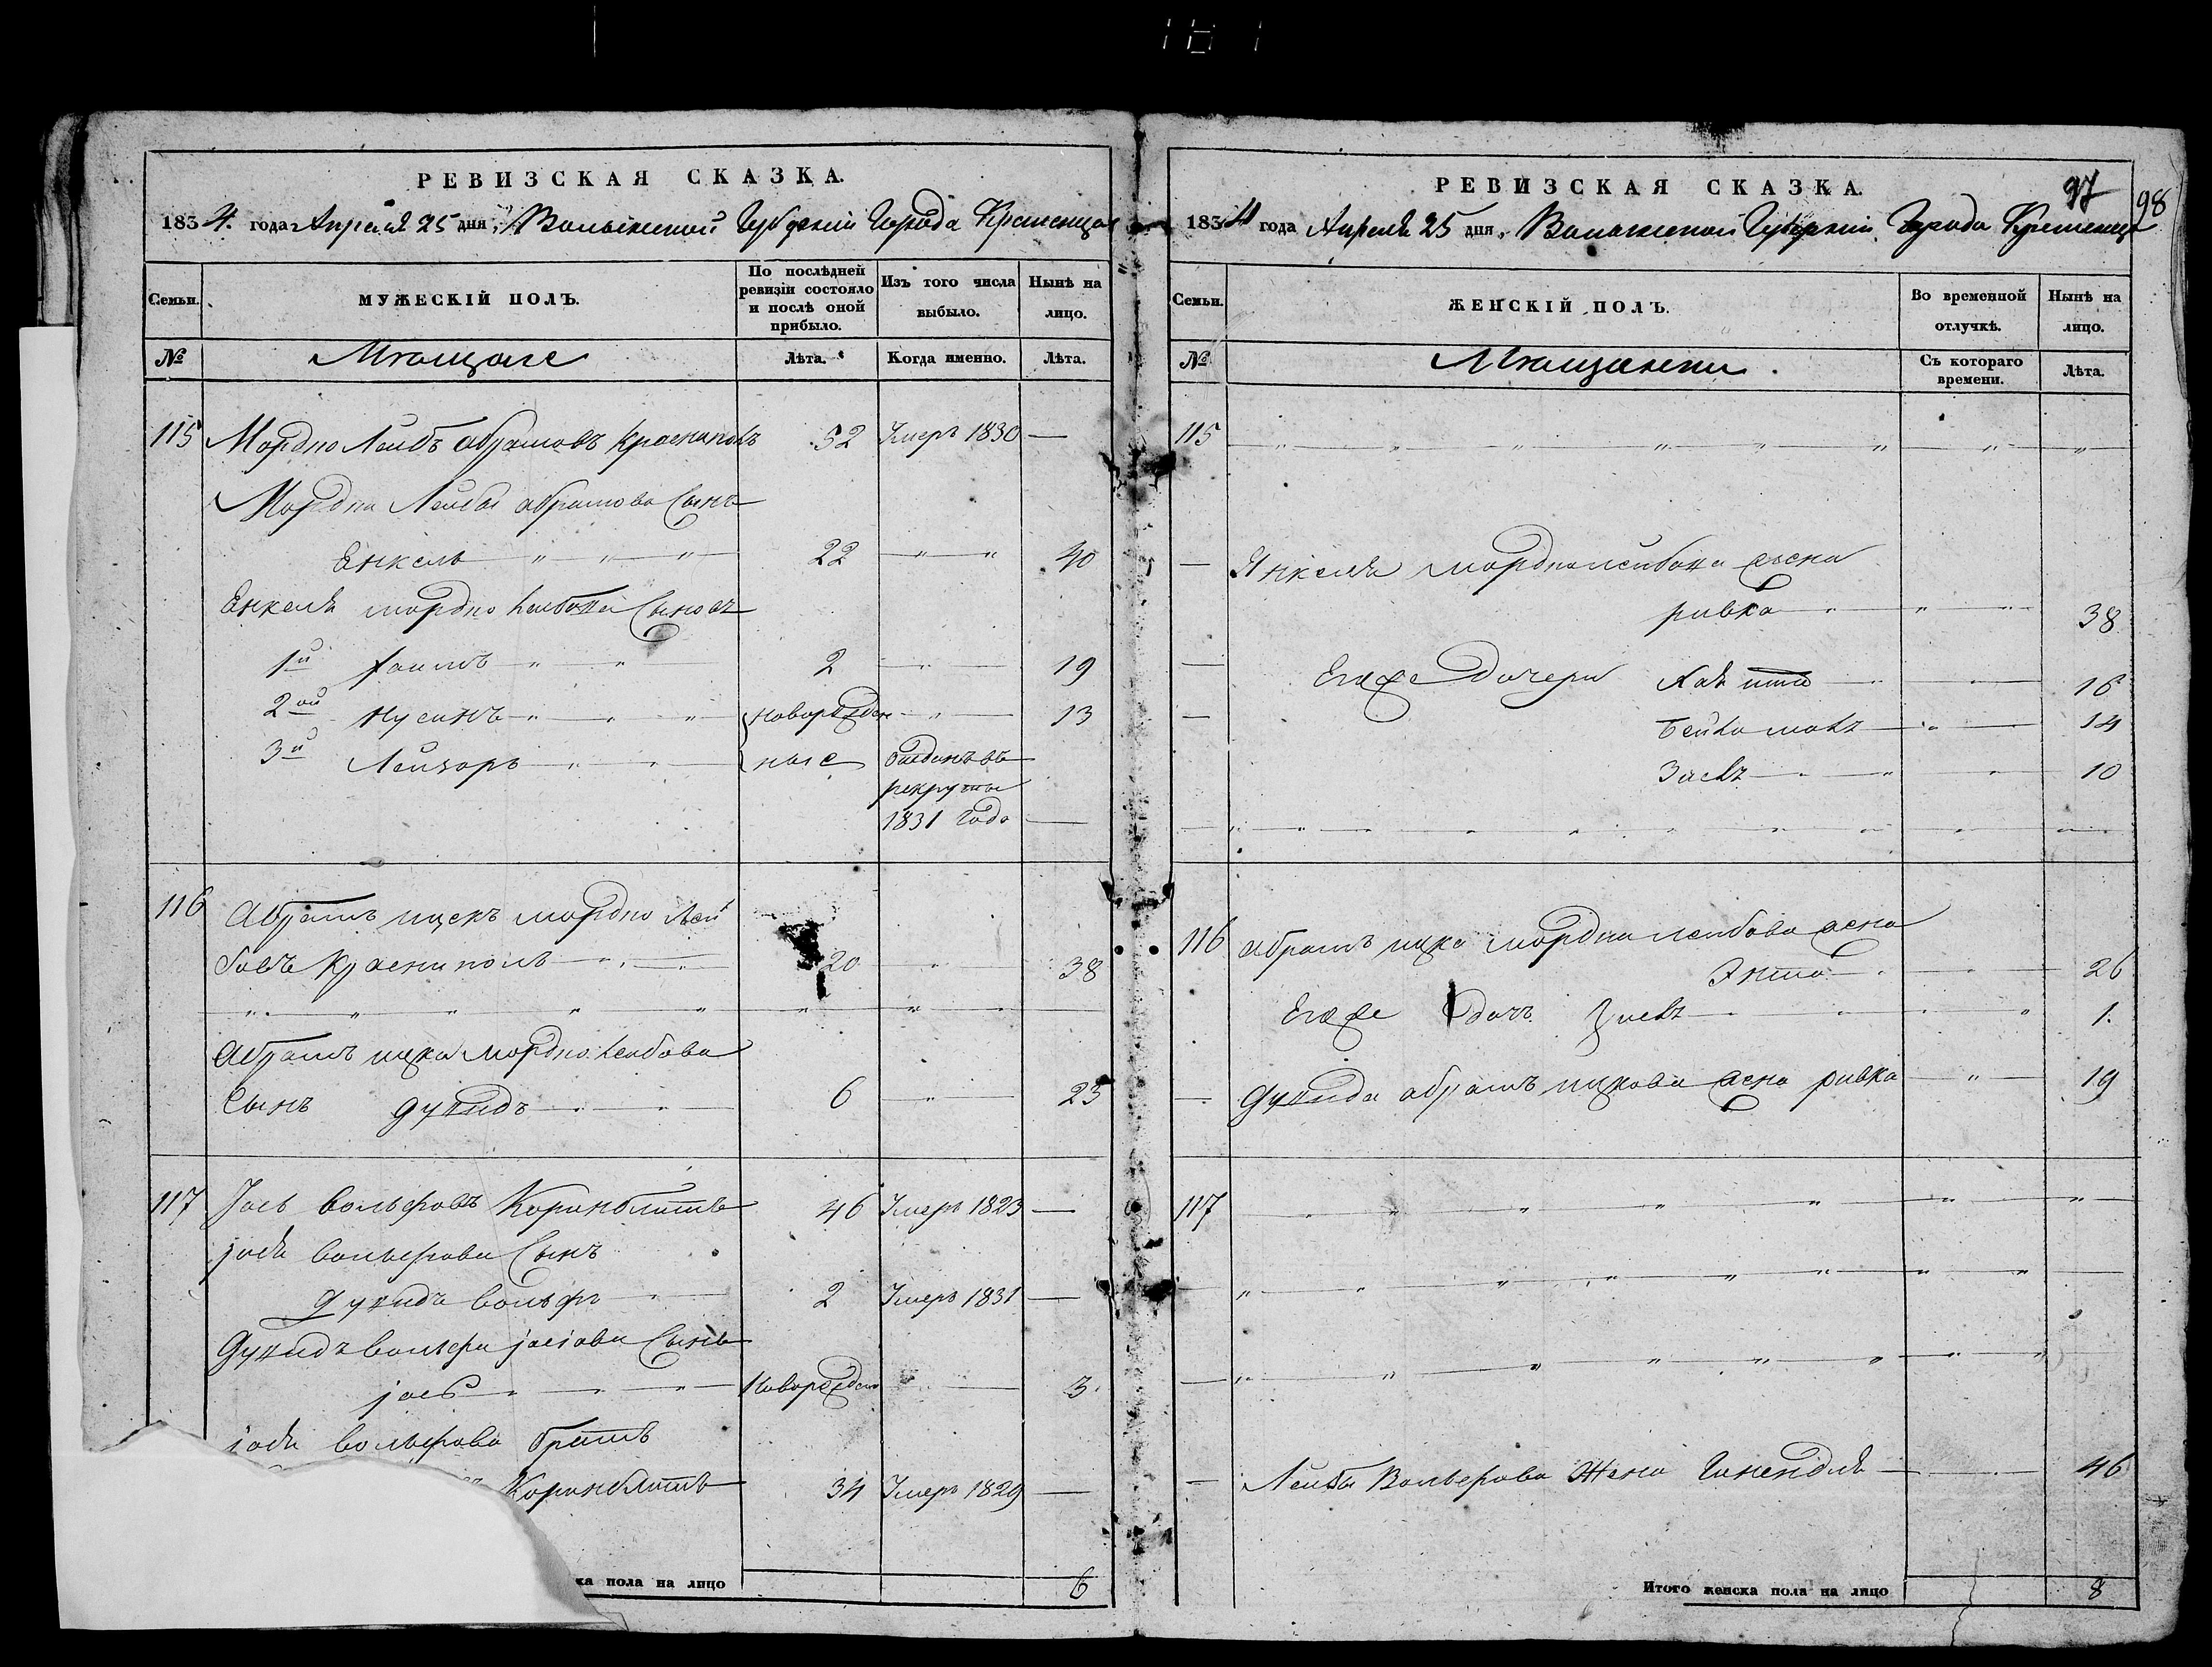 РЕВИЗСКАЯ СКАЗКА.
1834. года Апреля 25 дня, Волынской Губерніи Города Кременца
Семьи.
МУЖЕСКІЙ ПОЛЪ.
По послѣдней ревизіи состояло и послѣ оной прибыло.
Изъ того числа выбыло.
Нынѣ на лицо.
№
Мѣщане
Лѣта.
Когда именно.
Лѣта.
115 Мордко Лейбъ Абрамовъ 52 Умеръ 1830 —
Мордка Лейбы абрамова Сынъ
Енкель 22 40
Енкеля мордко Лейбова Сыновъ
1й Хаимъ 2 19
2ой Нусинъ новорожден 13
3й Лейзоръ ные отданъ въ
рекруты
1831 Года —
116 Абрамъ ицекъ мордко Лей
бовъ Краснополь 20 38
Абрамъ ицка мордко Лейбова
Сынъ Дувидъ 6 23
117 Іось Вольфовъ 46 Умеръ 1823 —
іося вольфова Сынъ
Дувидъ вольфъ 2 Умеръ 1831 —
Дувидъ вольфа Сынъ
іось Новорожден 3.
іося вольфова братъ
34 Умеръ 1829 —
ка пола на лицо 6
РЕВИЗСКАЯ СКАЗКА.
97
98
1834 года Апреля 25 дня, Волынской Губерніи Города Кременца
Семьи.
ЖЕНСКІЙ ПОЛЪ.
Во временной отлучкѣ.
Нынѣ на лицо.
№
Мѣщанки
Съ котораго времени.
Лѣта.
115
Янкеля мордколейбова жена
ривка 38
Егоже Дочери 16
14
10
116 Абрамъ ицка мордка лейбова жена
26
Егоже дочь 1.
Дувида абрамъ ицкова жена ривка 19
117
Лейбы Вольфова Жена 46
Итого женска пола на лицо 8